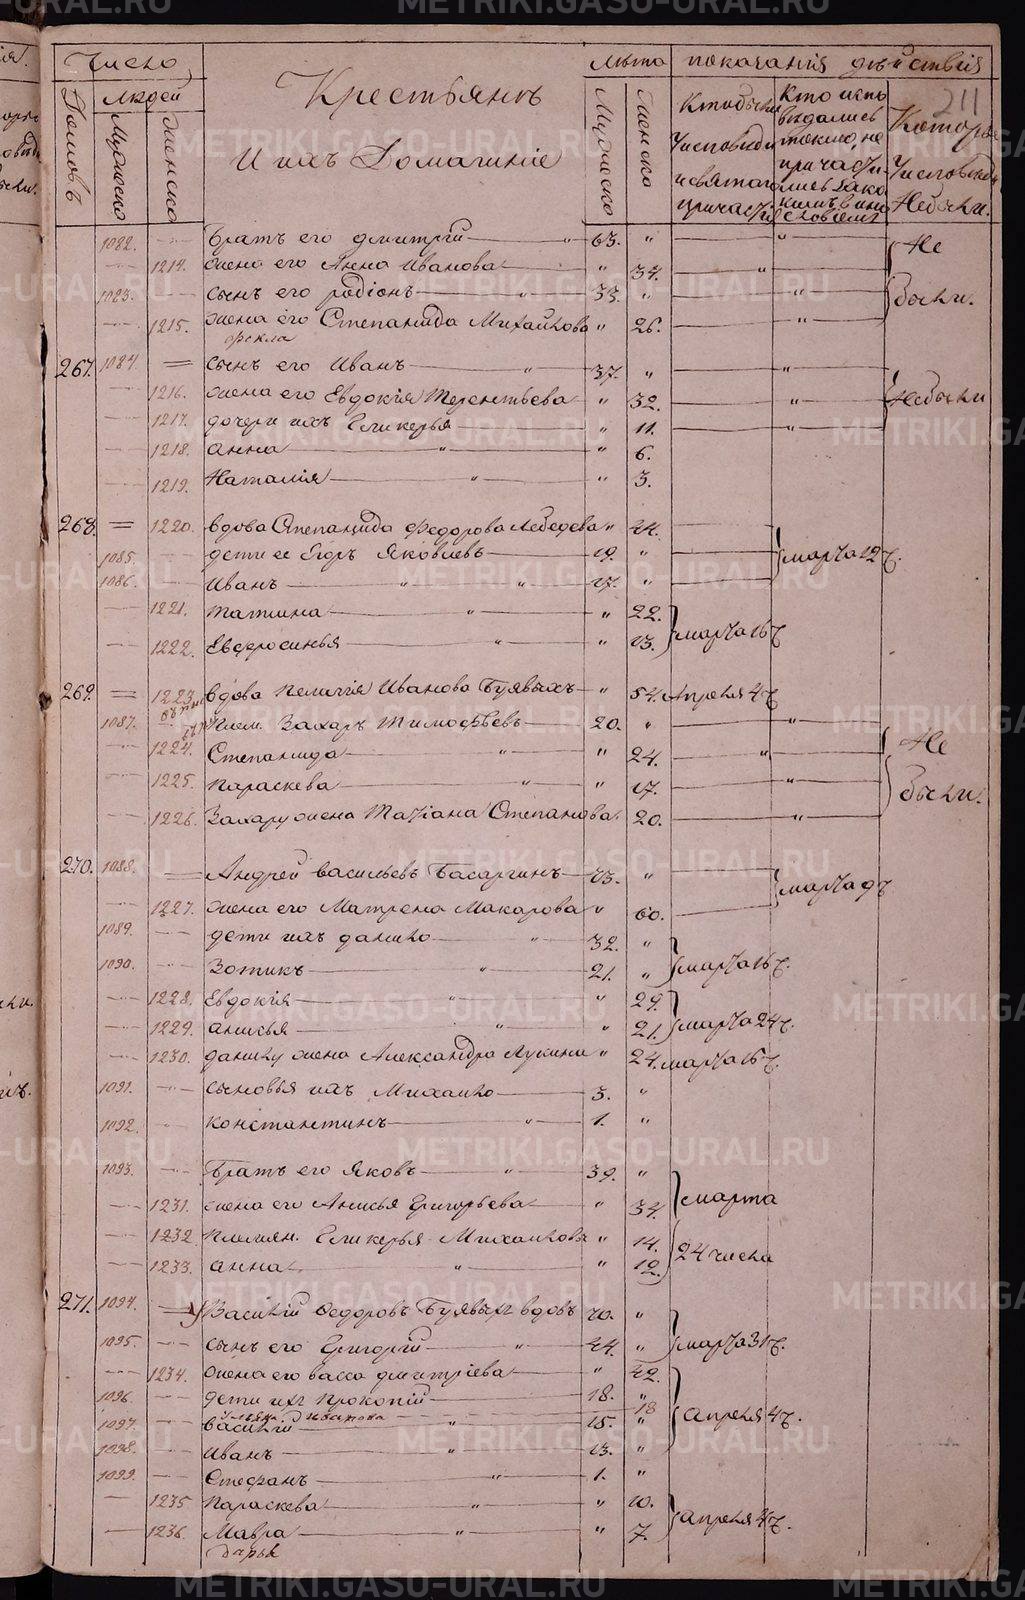 Число
людей
Домовъ
Мужеско
Женско
Крестьянъ
И ихъ Домашніе
лѣта
Мужеско
Женско
показанія дѣйствія
Кто были
Исповѣди
и святаго
причастія
Кто испо
вѣдались
токмо, но
причасти-
211
Которые
Исповѣди
Не были.
1082. Братъ его Дмитрій 63. "
1214. жена его Анна Иванова " 34.
Не
1083. сынъ его Родіонъ 33. "
были.
1215. жена его Степанида Михайлова " 26.
Фекла
267. 1084. сынъ его Иванъ 37. "
1216. жена его Евдокія Терентьева " 32.
Не были
1217. дочери ихъ Гликерья " 11.
1218. Анна " 6.
1219. Наталія " 3.
268. 1220. вдова Степанида Федорова Лебедева "
1085. дети ее Егоръ Яковлевъ 19. "
марта 12 ч.
1086. Иванъ 17. "
1221. Татіана " 22.
марта 16 ч
1222. Евфросинья " 13.
269. 1223. вдова Пелагія Иванова Буявыхъ " 54. Апреля 4 ч
1087. плем. Захаръ Тимофѣевъ 20. "
Не
1224. Степанида " 24.
1225. Параскева " 17.
были.
1226. Захару жена Татіана Степанова. 20.
270. 1088. Андрей Васильевъ Басаргинъ 73. "
марта 9 ч.
1227. жена его Матрена Макарова " 60.
1089. дети ихъ Данило 32. "
1090. Зотикъ 21. "
марта 16 ч.
1228. Евдокія " 29.
1229. Анисья " 21.
марта 24 ч.
1230. Данилу жена Александра Лукина " 24. марта 16 ч.
1091. сыновья ихъ Михайло 3. "
1092. Константинъ 1. "
1093. Братъ его Яковъ 39. "
марта
1231. жена его Анисья Григорьева " 34.
1232. племян. Гликерья Михайлова " 14.
24 числа
1233. Анна " 12.
271. 1094. Василій Федоровъ Буявыхъ вдовъ 70. "
1095. сынъ его Григорій 44. "
марта 31 ч.
1234. жена его Васса Дмитріева " 42.
1096. дети ихъ Прокопій 18. "
Иванова 18
апреля 4 ч.
1097. Василій 15. "
1098. Иванъ 13. "
1099. Стефанъ 1. "
1235 Параскева " 10.
апреля 4 ч.
1236. Мавра " 7.
Дарья